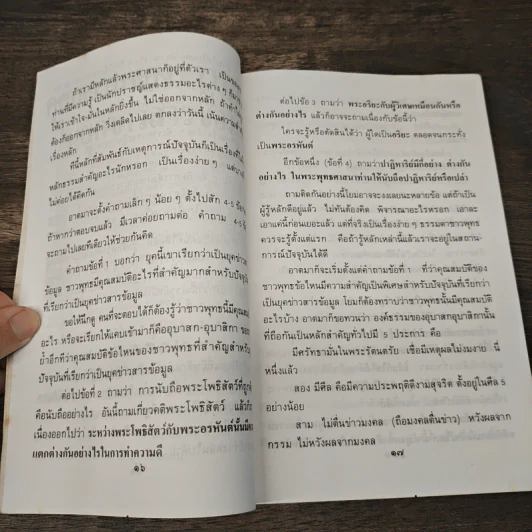 ถ้าเรามีหลักแล้วพระศาสนาก็อยู่ที่ตัวเรา เป็นของ
ท่านที่มีความรู้ เป็นนักปราชญ์แสดงธรรมอะไรต่าง ๆ ก็มา
ให้เราเข้าใจมั่นในหลักยิ่งขึ้น ไม่ใช่ออกจากหลัก ถ้า
ต้องก็ออกจากหลัก วิ่งเตลิดไปเลย ตกลงว่าวันนี้ เน้นความสำ
เรื่องหลัก
ทีนี้หลักที่สัมพันธ์กับเหตุการณ์ปัจจุบันก็เป็นเรื่องที่
หลักธรรมสำคัญอะไรนักหรอก เป็นเรื่องง่าย ๆ แต่บาง
ไม่ค่อยได้คิดกัน
อาตมาจะตั้งคำถามเล็ก ๆ น้อย ๆ ตั้งไปสัก 4-5 ข้อ
ถ้าหากว่าตอบจบแล้ว มีเวลาค่อยถามต่อ คำถาม 4-5 ข้อ
จะถามไปเลยทีเดียวให้ช่วยกันคิด
คำถามข้อที่ 1 บอกว่า ยุคนี้เขาเรียกว่าเป็นยุคข่าวสาร
ข้อมูล ชาวพุทธมีคุณสมบัติอะไรที่สำคัญมากสำหรับปัจจุบัน
ที่เรียกว่าเป็นยุคข่าวสารข้อมูล
ขอให้นึกดู คนที่จะตอบได้ก็ต้องรู้ว่าชาวพุทธนี้มีคุณสมบัติ
อะไร หรือจะเรียกให้แคบเข้ามาก็คืออุบาสก-อุบาสิกา ขอ
ย้ำอีกทีว่าคุณสมบัติข้อไหนของชาวพุทธที่สำคัญสำหรับ
ปัจจุบันที่เรียกว่าเป็นยุคข่าวสารข้อมูล
ต่อไปข้อที่ 2 ถามว่า การนับถือพระโพธิสัตว์ที่ถูกต้อง
คือนับถืออย่างไร อันนี้ถามเกี่ยวคติพระโพธิสัตว์ แล้วก็
เนื่องออกไปว่า ระหว่างพระโพธิสัตว์กับพระอรหันต์นั้นมีความ
แตกต่างกันอย่างไรในการทำความดี
๑๖
ต่อไปข้อ 3 ถามว่า พระอริยะกับผู้วิเศษเหมือนกันหรือ
ต่างกันอย่างไร แล้วก็อาจจะถามเนื่องกับข้อนี้ว่า
ใครจะรู้หรือตัดสินได้ว่า ผู้ใดเป็นอริยะ ตลอดจนกระทั่ง
เป็นพระอรหันต์
อีกข้อหนึ่ง (ข้อที่ 4) ถามว่าปาฏิหาริย์มีกี่อย่าง ต่างกัน
อย่างไร ในพระพุทธศาสนาท่านให้นับถือปาฏิหาริย์หรือเปล่า
ถามติดกันอย่างนี้โยมอาจจะงงเลยนะหลายข้อ แต่ถ้าเป็น
ผู้รู้หลักดีอยู่แล้ว ไม่ทันต้องคิด พิจารณาอะไรหรอก เอาละ
เอาแค่นี้ก่อนเยอะแล้ว แต่ที่จริงเป็นเรื่องง่าย ๆ ธรรมดาชาวพุทธ
ควรจะรู้ตั้งแต่แรก คือถ้ารู้หลักเหล่านี้แล้วเราจะอยู่ในสถาน-
การณ์ปัจจุบันได้ดี
อาตมาก็จะเริ่มตั้งแต่คำถามข้อที่ 1 ที่ว่าคุณสมบัติของ
ชาวพุทธข้อไหนมีความสำคัญเป็นพิเศษสำหรับปัจจุบันที่เรียกว่า
เป็นยุคข่าวสารข้อมูล โยมก็ต้องทราบว่าชาวพุทธนั้นมีคุณสมบัติ
อะไรบ้าง อาตมาก็ขอทวนว่า องค์ธรรมของอุบาสกอุบาสิกานั้น
ที่ถือกันเป็นหลักสำคัญทั่วไปมี 5 ประการ คือ
มีศรัทธามั่นในพระรัตนตรัย เชื่อมีเหตุผลไม่งมงาย นี่
หนึ่งแล้ว
สอง มีศีล คือมีความประพฤติดีงามสุจริต ตั้งอยู่ในศีล 5
อย่างน้อย
สาม ไม่ตื่นข่าวมงคล (ถือมงคลตื่นข่าว) หวังผลจาก
กรรม ไม่หวังผลจากมงคล
๑๗